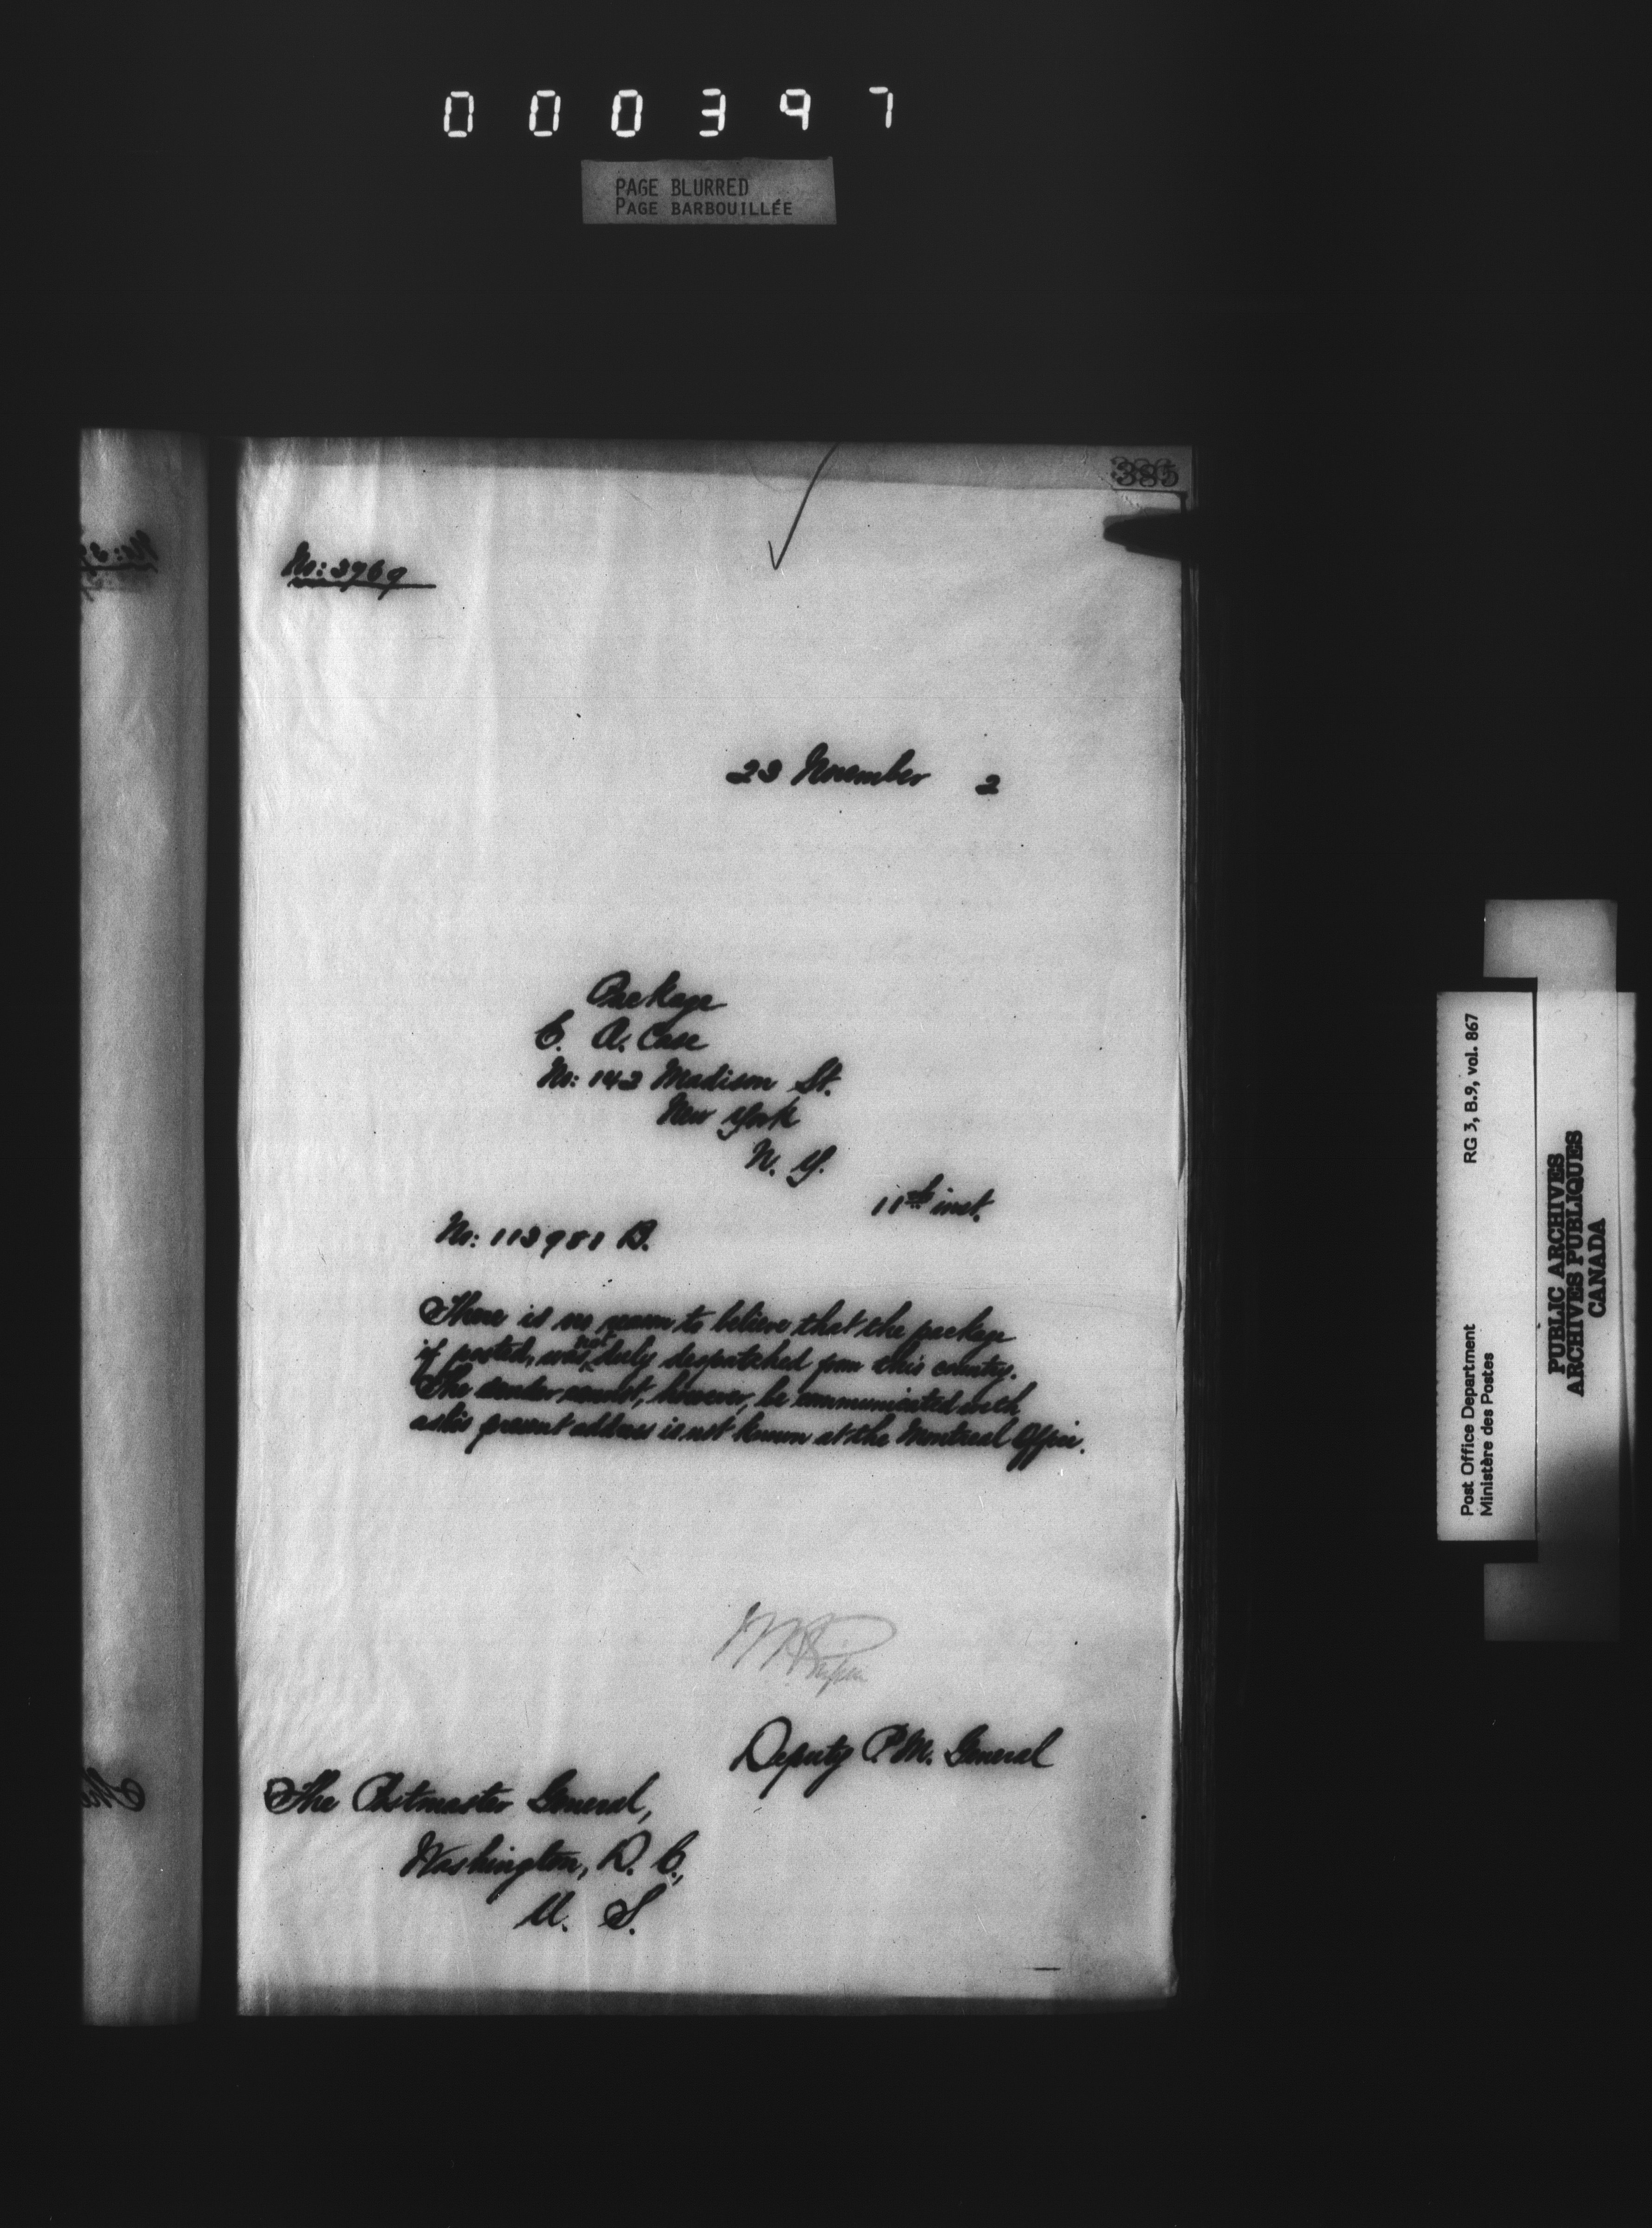 000397
PAGE BLURRED
PAGE BARBOUILLÉE
385
No: 3769
23 November 2
Package
C. A. Case
No: 142 Madison St.
New York
N. Y.
11th inst.
No: 113981 B.
There is no reason to believe that the package
if posted, was not duly despatched from this country.
The sender cannot, however, be communicated with
as his present address is not known at the Montreal Office.
Deputy P.M. General
The Postmaster General,
Washington, D. C.,
U. S.
Post Office Department RG 3, B.9, vol. 867
Ministère des Postes
PUBLIC ARCHIVES
ARCHIVES PUBLIQUES
CANADA